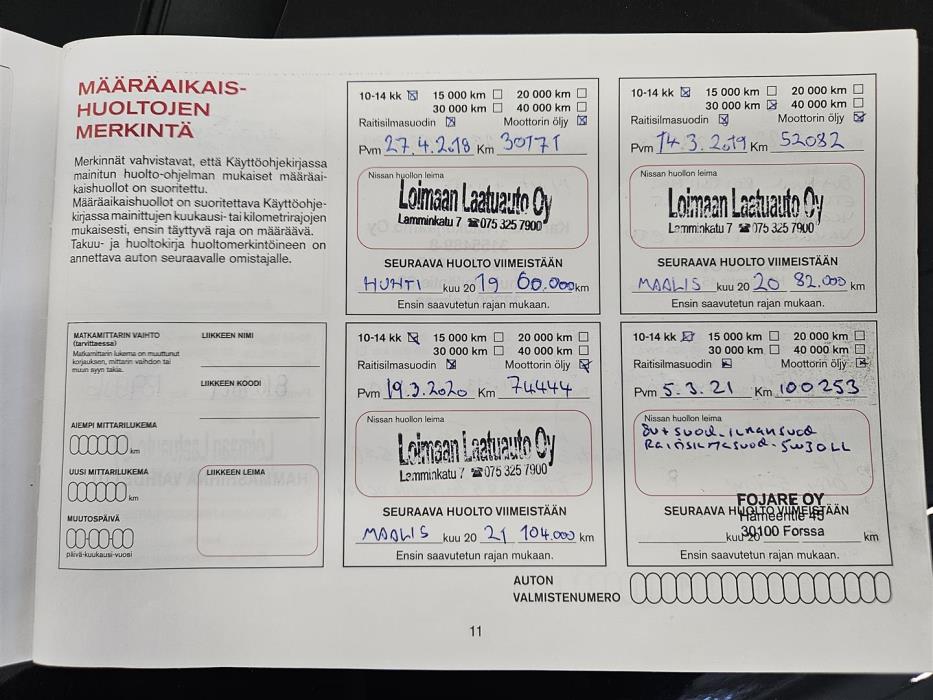 MÄÄRÄAIKAIS-
HUOLTOJEN
MERKINTÄ
Merkinnät vahvistavat, että Käyttöohjekirjassa
mainitun huolto-ohjelman mukaiset määräai-
kaishuollot on suoritettu.
Määräaikaishuollot on suoritettava Käyttöohje-
kirjassa mainittujen kuukausi- tai kilometrirajojen
mukaisesti, ensin täyttyvä raja on määräävä.
Takuu- ja huoltokirja huoltomerkintöineen on
annettava auton seuraavalle omistajalle.
10-14 kk 15 000 km 20 000 km
30 000 km 40 000 km
Raitisilmasuodin Moottorin öljy
Pvm 27.4.2018 Km 30171
Nissan huollon leima
Loimaan Laatuauto Oy
Lamminkatu 7 ☎075 325 7900
SEURAAVA HUOLTO VIIMEISTÄÄN
HUHTI kuu 2019 60.000 km
Ensin saavutetun rajan mukaan.
10-14 kk 15 000 km 20 000 km
30 000 km 40 000 km
Raitisilmasuodin Moottorin öljy
Pvm 14.3.2019 Km 52082
Nissan huollon leima
Loimaan Laatuauto Oy
Lamminkatu 7 ☎075 325 7900
SEURAAVA HUOLTO VIIMEISTÄÄN
MAALIS kuu 20 20 82.000 km
Ensin saavutetun rajan mukaan.
MATKAMITTARIN VAIHTO
(tarvittaessa)
Matkamittarin lukema on muuttunut
korjauksen, mittarin vaihdon tai
muun syyn takia.
LIIKKEEN NIMI
LIIKKEEN KOODI
AIEMPI MITTARILUKEMA
km
UUSI MITTARILUKEMA
km
LIIKKEEN LEIMA
MUUTOSPÄIVÄ
päivä-kuukausi-vuosi
10-14 kk 15 000 km 20 000 km
30 000 km 40 000 km
Raitisilmasuodin Moottorin öljy
Pvm 19.3.2020 Km 74444
Nissan huollon leima
Loimaan Laatuauto Oy
Lamminkatu 7 ☎075 325 7900
SEURAAVA HUOLTO VIIMEISTÄÄN
MAALIS kuu 20 21 104.000 km
Ensin saavutetun rajan mukaan.
10-14 kk 15 000 km 20 000 km
30 000 km 40 000 km
Raitisilmasuodin Moottorin öljy
Pvm 5.3.21 Km 100253
Nissan huollon leima
5W30LL
FOJARE OY
SEURAAVA HUOLTO VIIMEISTÄÄN
Hämeentie 45
kuu 20 km
30100 Forssa
Ensin saavutetun rajan mukaan.
AUTON
VALMISTENUMERO
11